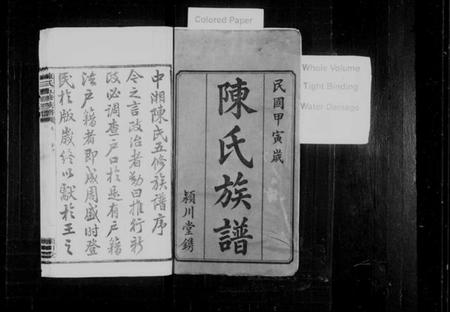 Colored Paper
Whole Volume
Tight Binding
Water Damage
民國甲寅歲
陳氏族譜
潁川堂鐫
中湘陳氏五修族譜序
今之言政治者動曰推行新
政必調查戶口於是有戶籍
法戶籍者即成周盛時登
民於版歲終以獻於王之